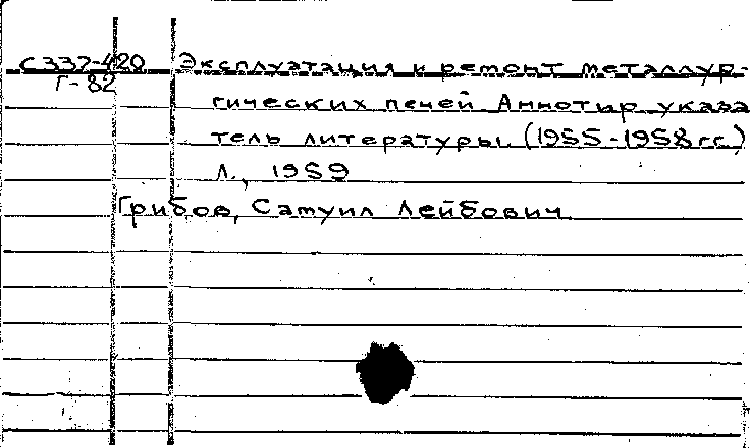 С337-420 Эксплуатация и ремонт металлур-
Г-82
гических печей Аннотир указа
тель литературы. (1955-1958гг.)
Л., 1959
Грибов, Самуил Лейбович